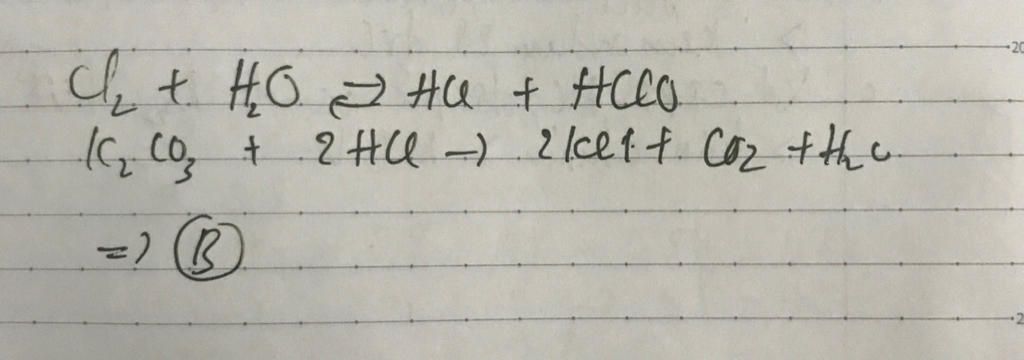 Cl₂ + H₂O ⇌ HCl + HClO
K₂CO₃ + 2HCl → 2KCl + CO₂ + H₂O
=> B